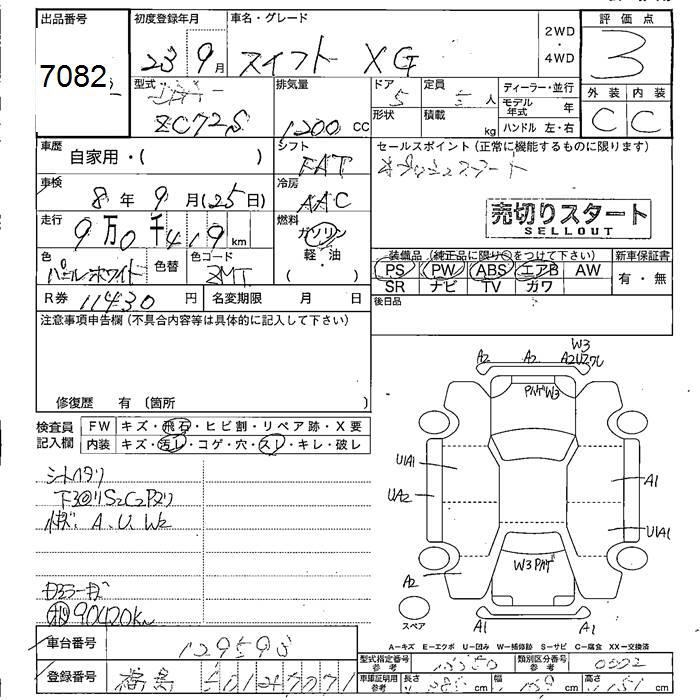 出品番号
7082
初度登録年月
23 9月
車名・グレード
スイフト XG
2WD
・
4WD
評価点
3
外装 内装
C C
型式
ZC72S
排気量
1200 cc
ドア
5
形状
定員
人
積載
kg
ディーラー・並行
モデル年式 年
ハンドル 左・右
車歴
自家用・( )
シフト
FAT
セールスポイント(正常に機能するものに限ります)
プッシュスタート
車検
8年 9月(25日)
冷房
AAC
走行
9万0千419km
燃料
ガソリン
軽・油
( )
売切りスタート
SELLOUT
色
パールホワイト
色替
色コード
ZMT
装備品(純正品に限り○をつけて下さい)
PS PW ABS エアB AW
SR ナビ TV カワ
新車保証書
有・無
R券 11430円
名変期限 月 日
後日品
注意事項申告欄(不具合内容等は具体的に記入して下さい)
修復歴 有 (箇所 )
検査員記入欄
FW キズ・飛石・ヒビ割・リペア跡・X要
内装 キズ・汚レ・コゲ・穴・スレ・キレ・破レ
シートヘタリ
A.U.W2
90420km
A2 A2 W3
U1A1
UA2
A2
A1
U1A1
W3
A1 A1
スペア
A−キズ E−エクボ U−凹み W−補修跡 S−サビ C−腐食 XX−交換済
車台番号
129595
登録番号
福島 501
型式指定番号 参考
類別区分番号 参考
車庫証明用 参考
長さ cm
幅 cm
高さ cm